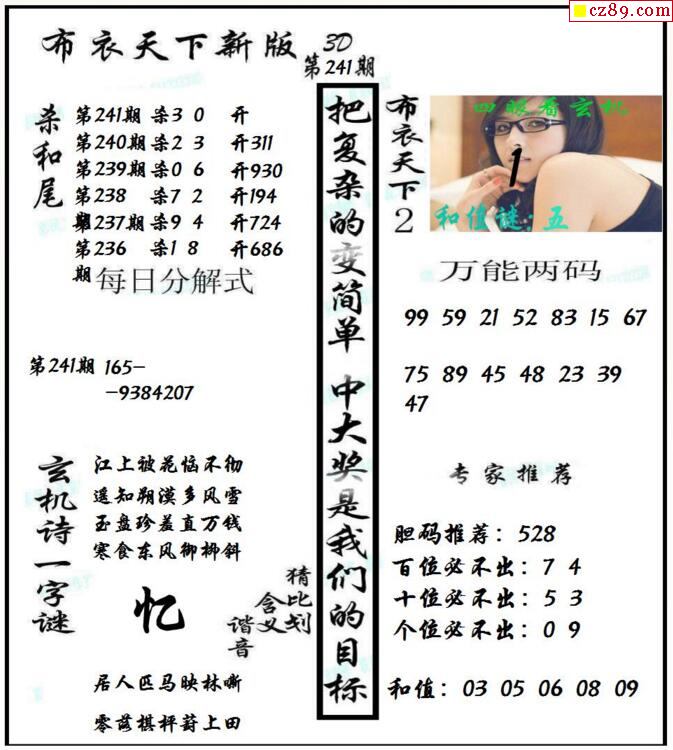 cz89.com
布衣天下新版
3D
第241期
杀和尾
第241期 杀3 0 开
第240期 杀2 3 开311
第239期 杀0 6 开930
第238 杀7 2 开194
期237期 杀9 4 开724
第236 杀1 8 开686
期
每日分解式
第241期 165-
-9384207
玄机诗一字谜
江上被花恼不彻
遥知朔漠多风雪
玉盘珍羞直万钱
寒食东风御柳斜
忆
猜比划
含义
谐音
居人匹马映林嘶
零落棋枰葑上田
把复杂的变简单 中大奖是我们的目标
布衣天下2
四眼看玄机
1
和值谜:五
万能两码
99 59 21 52 83 15 67
75 89 45 48 23 39
47
专家推荐
胆码推荐：528
百位必不出：7 4
十位必不出：5 3
个位必不出：0 9
和值：03 05 06 08 09